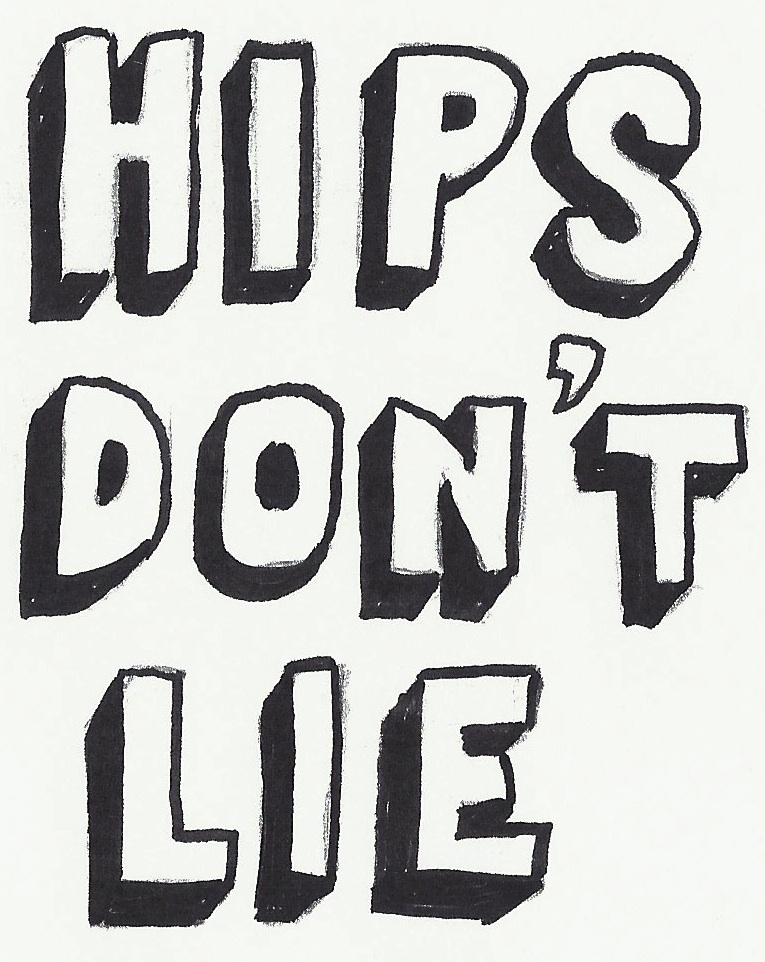 HIPS
DON'T
LIE